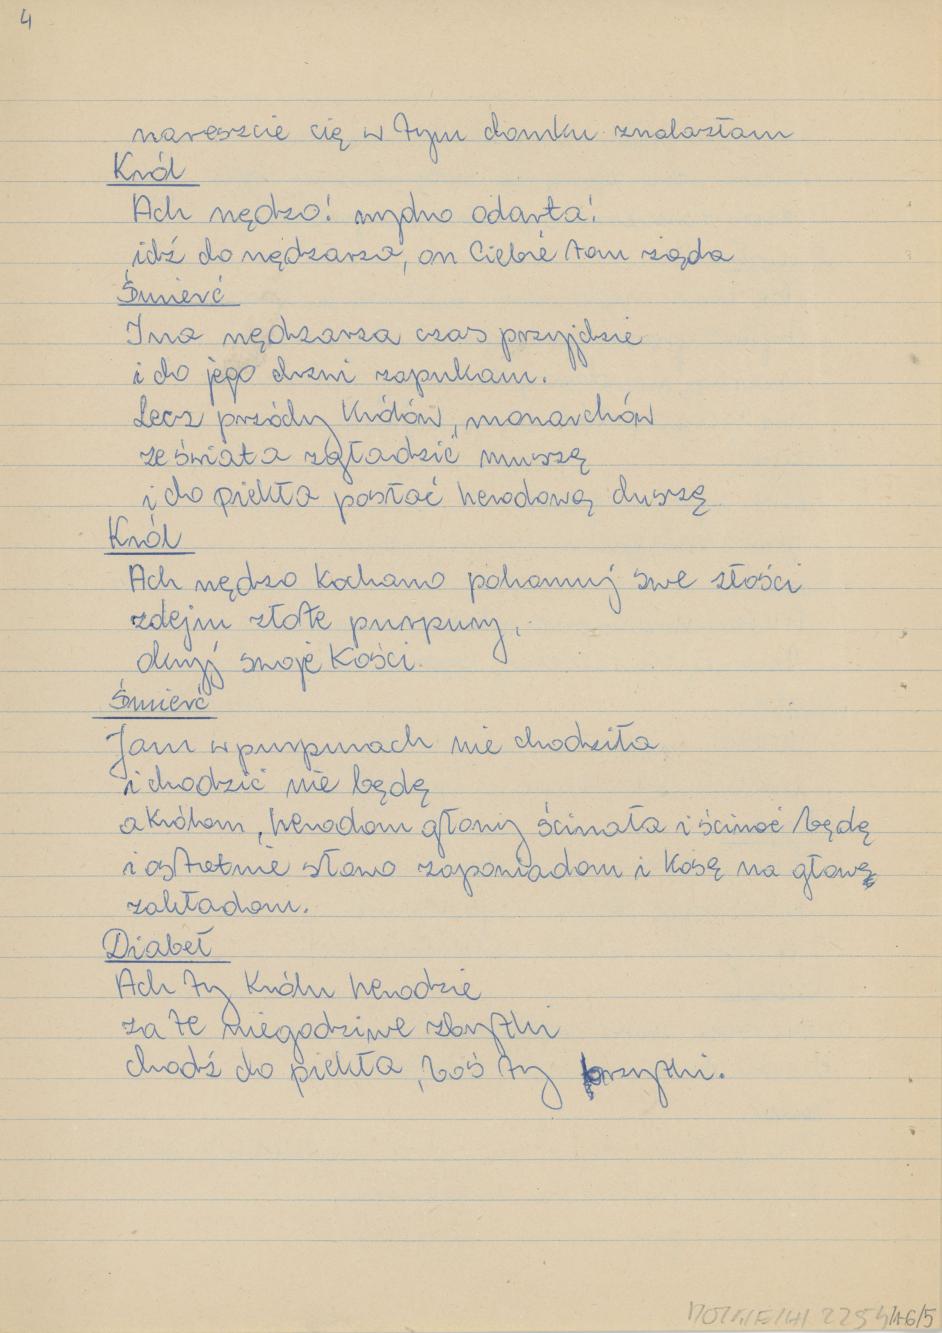 4
nareszcie cię w tym domku znalazłam
Król
Ach nędzo! nędzo odarta!
idź do nędzarza, on Ciebie tam żąda
Śmierć
I na nędzarza czas przyjdzie
i do jego drzwi zapukam.
Lecz przódy Królów, monarchów
ze świata zgładzić muszę
i do piekła posłać herodową duszę
Król
Ach nędzo kochano pohamuj swe złości
zdejm złote purpury,
okryj swoje Kości
Śmierć
Jam w purpurach nie chodziła
i chodzić nie będę
a Królom, herodom głowy ścinała i ścinać będę
i ostetnie słowo zapowiadom i Kosę na głowę
zakładom.
Diabeł
Ach ty Królu herodzie
za te niegodziwe zbytki
chodź do piekła, boś ty brzytki.
/16/5